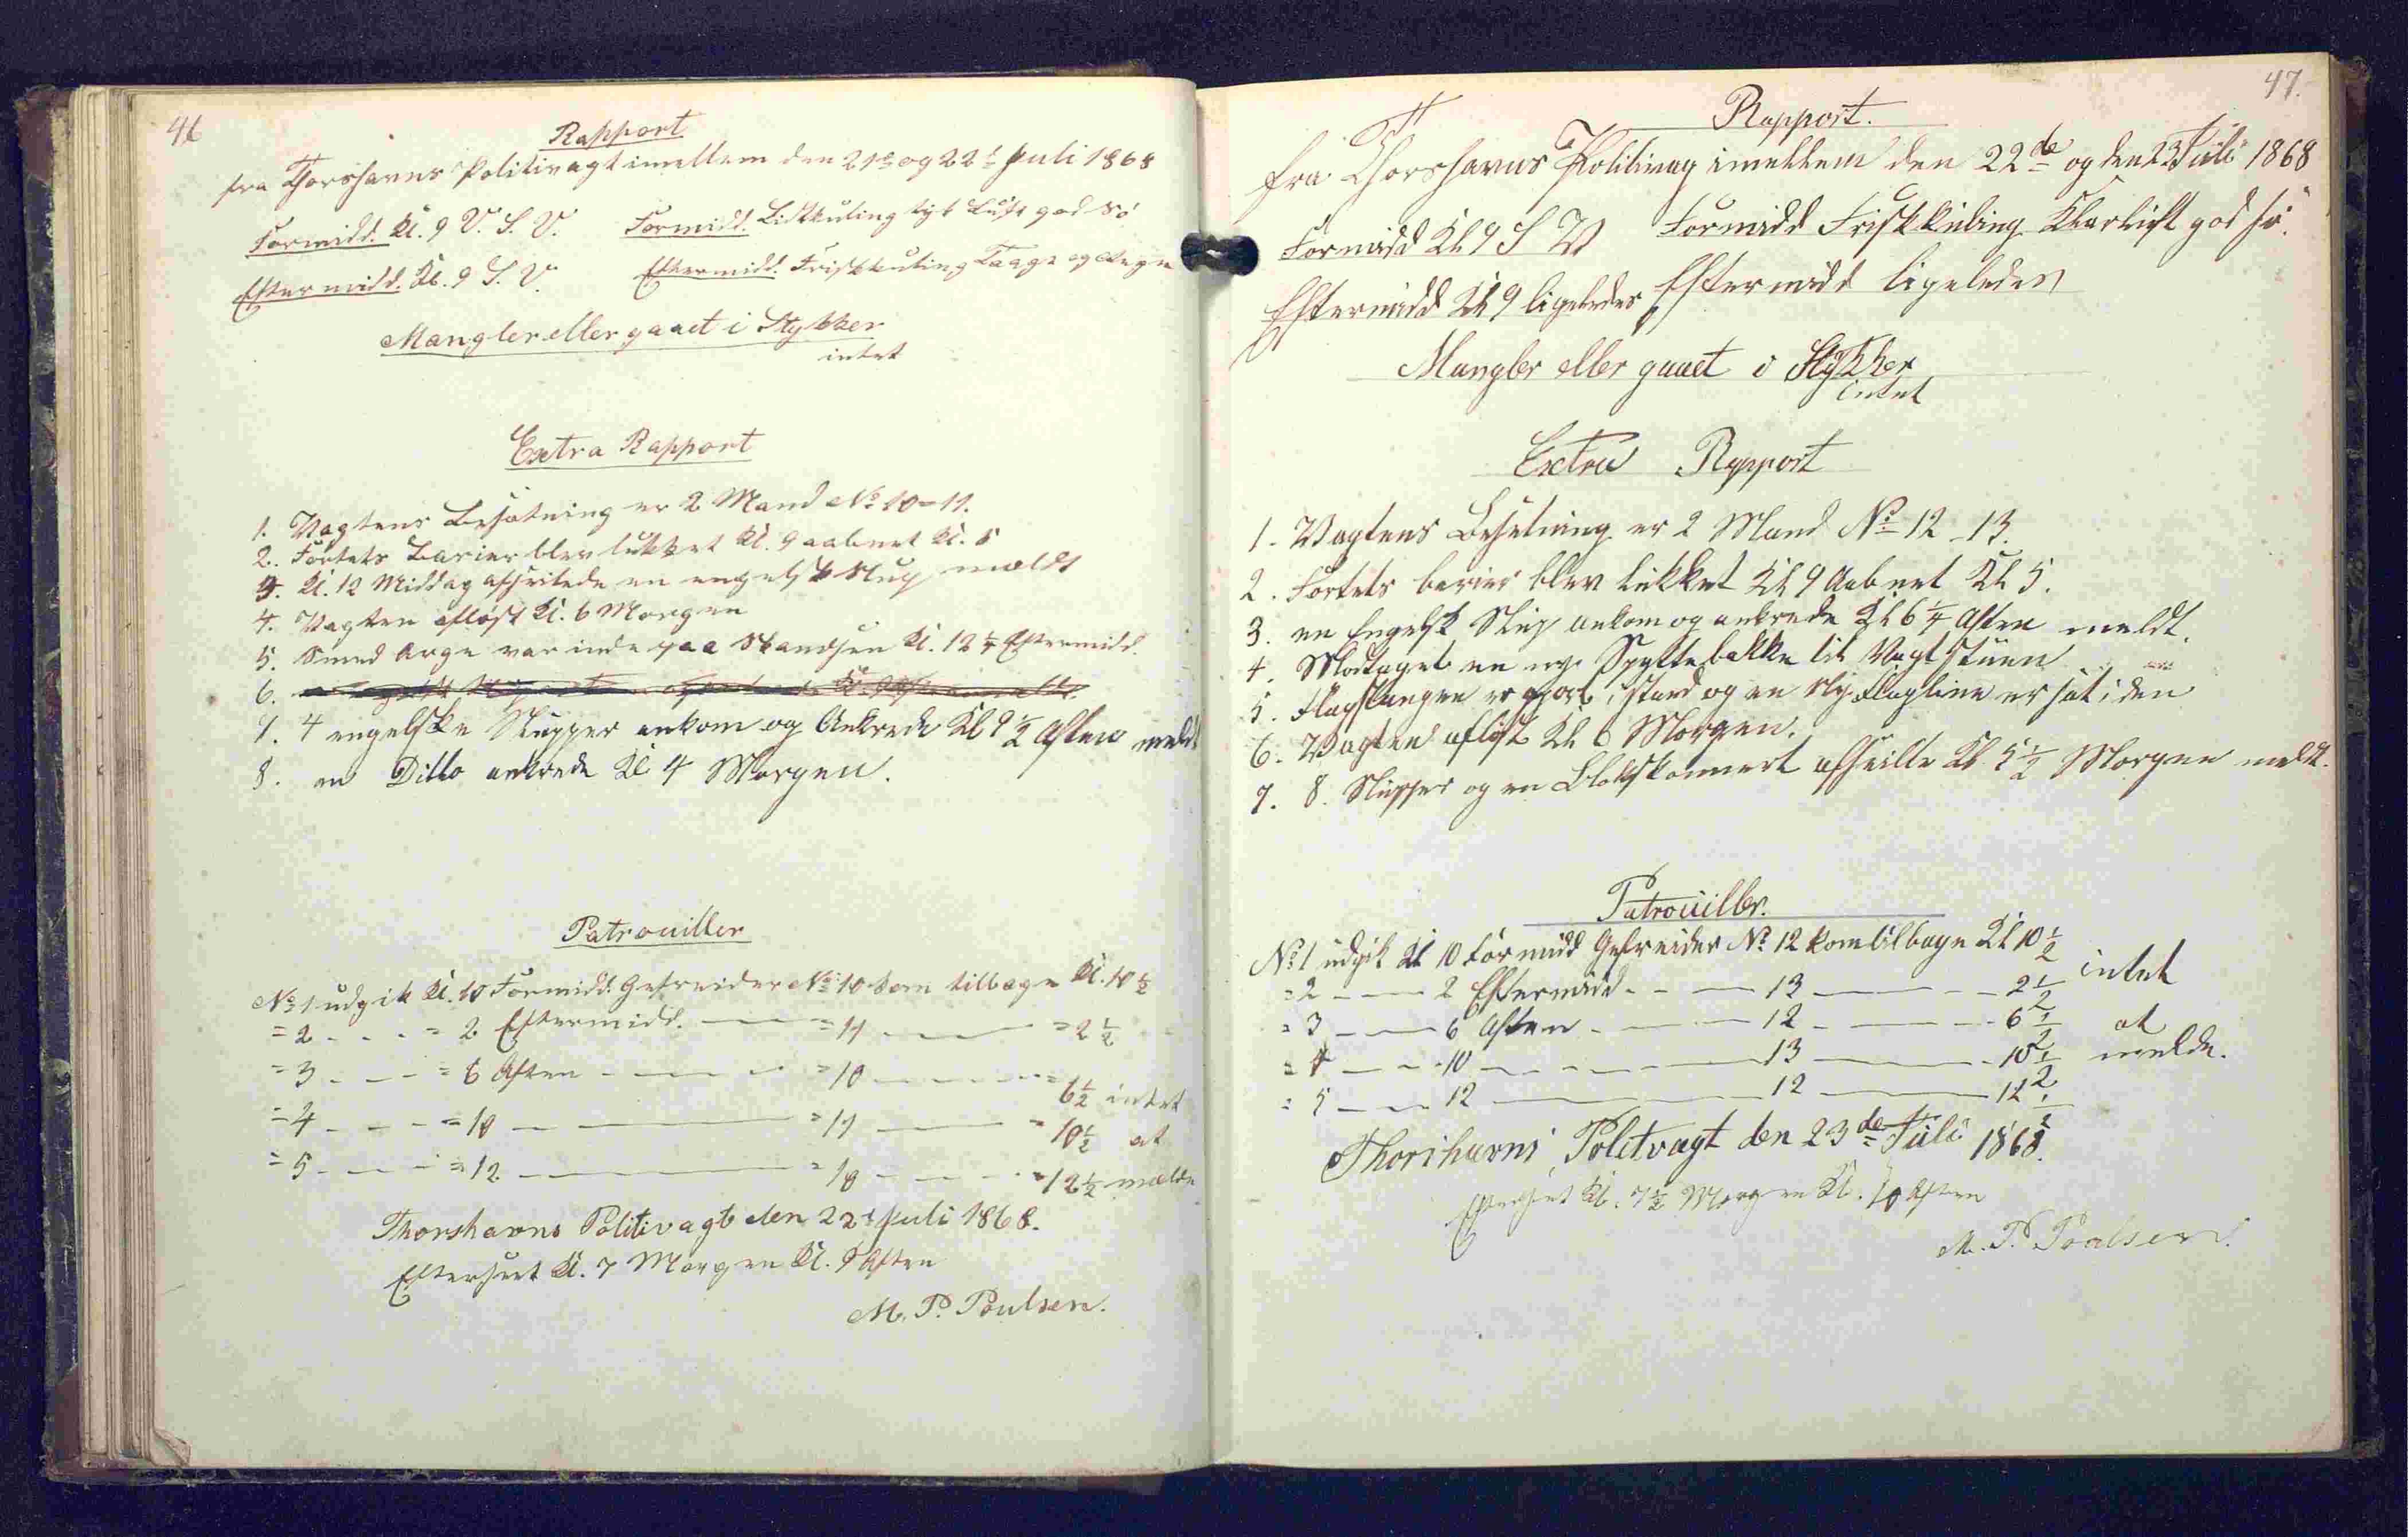 46
Rapport
fra Thorshavns Politivagt imellem den 21de og 22de Juli 1868
Formidd. Kl. 9 V. S. V. Formidd. Lidt kuling tyk Luft god Sö
Eftermidd. Kl. 9 S. V. Eftermidd. Frisk kuling Taage og Regn
Mangler eller gaaet i Stykker
intet
Extra Rapport
1. Vagtens Besætning er 2 Mand No 10 = 11.
2. Fortets Barier blev lukket Kl. 9 aabnet Kl. 5
3. Kl. 12 Middag afseilede en engelsk Slup meldt
4. Vagten afløst Kl. 6 Morgen
5. Smed Arge var inde paa Skandsen Kl. 12 ¼ Eftermidd.
6.
7. 4 engelske Slupper ankom og Ankrede Kl 9 ½ Aften meldt
8. en Ditto ankrede Kl 4 Morgen.
Patrouiller
No 1 udgik Kl. 10 Formidd. Gefreider No 10 kom tilbage Kl. 10 ½
= 2 - - - = 2 Eftermidd. — = 11 — = 2 ½
= 3 - - - = 6 Aften - — = 10 - - - = 6 ½ intet
= 4 - - - = 10 — = 11 — = 10 ½ at
= 5 - - - = 12 — = 10 - - - = 12 ½ melde
Thorshavns Politivagt den 22de Juli 1868.
Efterseet Kl. 7 Morgen Kl. 9 Aften
M. P. Poulsen.
47.
Rapport.
fra Thorshavns Politivag imellem den 22de og den 23 Juli 1868
Formidd Kl 9 S V Formidd Frisk kuling Klarluft god sö.
Eftermidd Kl 9 ligeledes Eftermidd ligeledes
Mangler eller gaaet i Stykker
intet
Extra Rapport
1. Vagtens Besetning er 2 Mand No 12 - 13.
2. Fortets barier blev lukket Kl 9 Aabnet Kl 5.
3. en Engelsk Slup ankom og ankrede Kl 6 ¼ Aften meldt.
4. Modtaget en nye Spyttebakke til Vagtstuen
5. Flagstangen er gjort istand og en Ny Flagline er sat i den
6. Vagten afløst Kl 6 Morgen.
7. 8. Slupper og en Slobskonnert afseilte Kl 5 ½ Morgen meldt.
Patrouiller.
No 1 udgik Kl 10 Formidd Gefreider No 12 kom tilbage Kl 10 ½
= 2 - — 2 Eftermidd - - — 13 — - 2 ½ intet
= 3 — — 6 Aften - — 12 - — - 6 ½ at
= 4 — - - 10 — - - — 13 — - 10 ½ melde.
= 5 — — 12 — 12 — 12 ½
Thorshavns Politvagt den 23de Juli 1868.
Efterseet Kl. 7 ½ Morgen Kl. 10 Aften
M. P. Poulsen.